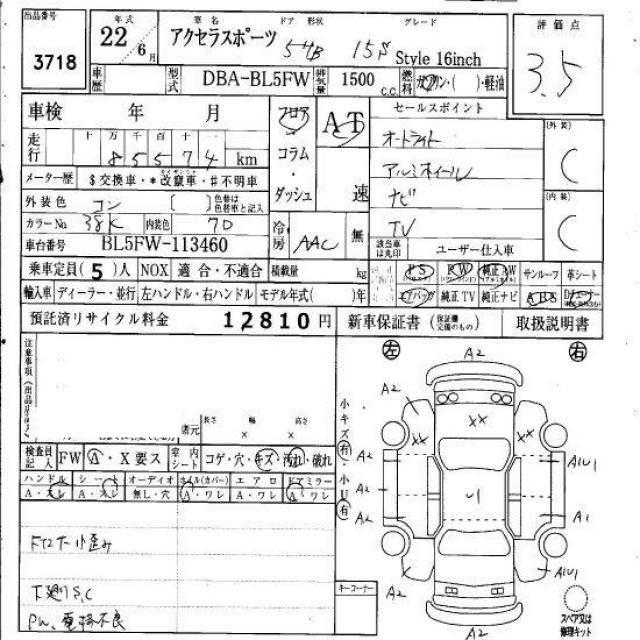 出品番号 年式 車名 ドア 形状 グレード 評価点
3718 22 6月 アクセラスポーツ 5HB 15S Style 16inch 3.5
車歴 型式 DBA-BL5FW 排気量 1500 c.c. 燃料 ガソリン・( )・軽油
車検 年 月 フロア AT セールスポイント (外装)
走行 十 万 千 百 十 一 8 5 5 7 4 km コラム・ オートライト C
メーター歴 $交換車・*改竄車・#不明車 アルミホイール
外装色 コン [ ] 色替は色替車と記入 ダッシュ 速 ナビ (内装)
カラーNo 38K 内装色 70 冷房 AAC 無 TV C
車台番号 BL5FW-113460 該当車は丸印 ユーザー仕入車
乗車定員(5)人 NOX 適合・不適合 積載量 kg PS PW 純正AW サンルーフ 革シート
輸入車 ディーラー・並行 左ハンドル・右ハンドル モデル年式( )年 エアバッグ 純正TV 純正ナビ ABS
預託済リサイクル料金 12810円 新車保証書(保証欄交換のもの) 取扱説明書
注意事項 左 A2 右
A2
小キズ(有)・小U(有)
諸元 長さ × 幅 × 高さ
XX
XX
検査員記入 FW A・X要ス 室内シート コゲ・穴・キズ・汚れ・破れ
A2 A1U1
ハンドル シート オーディオ ホイル(カバー) エアロ ドアミラー
A・スレ A・スレ 無し・穴 A・ワレ A・ワレ A・ワレ
U1
A2 A1
下廻りS,C
A2 A1U1
PW、電格不良 キーコーナー
A2 スペア又は修理キット